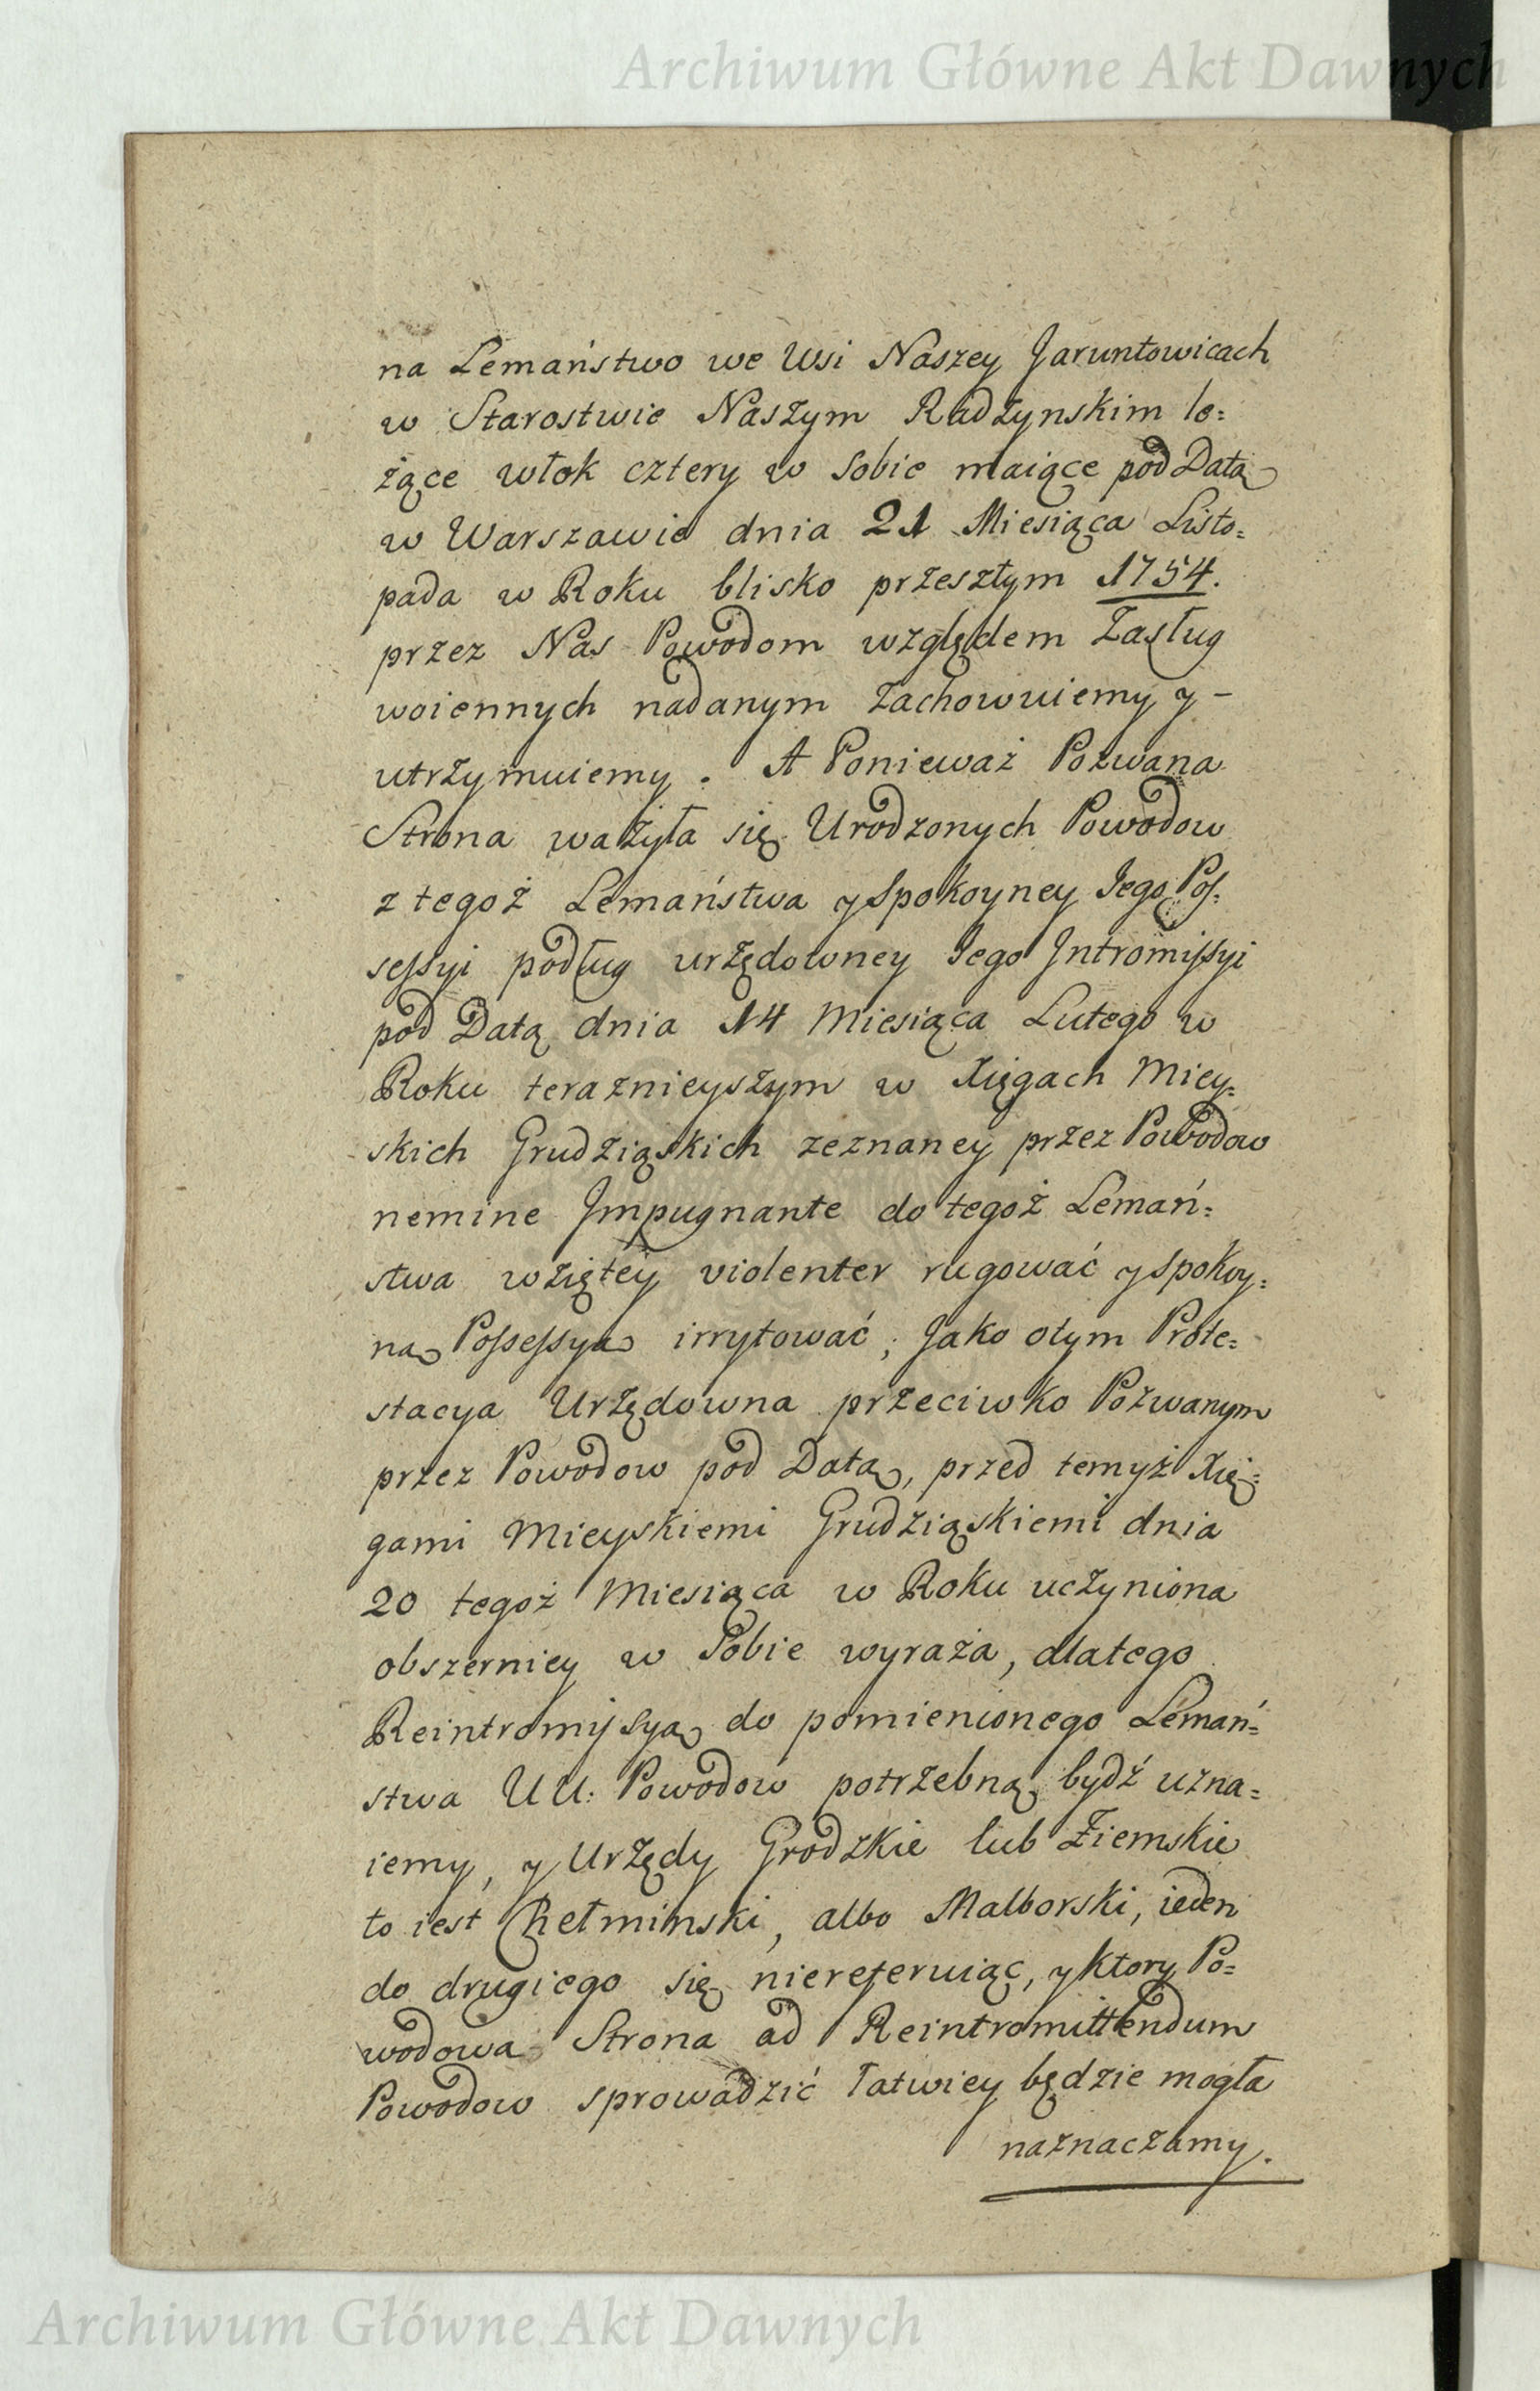 Archiwum Główne Akt Dawnych
na Lemaństwo we Wsi Naszey Jaruntowicach
w Starostwie Naszym Radzynskim le=
żące włok cztery w sobie maiące pod Datą
w Warszawie dnia 21 Miesiąca Listo=
pada w Roku blisko przeszłym 1754.
przez Nas Powodom względem Zasług
woiennych nadanym zachowuiemy y –
utrzymuiemy. A Ponieważ Pozwana
Strona ważyła się Urodzonych Powodow
z tegoż Lemaństwa y Spokoyney Jego Pos=
sessyi podług urzędowney Jego Intromissyi
pod Datą dnia 14 Miesiąca Lutego w
Roku teraznieyszym w Xięgach Miey=
skich Grudziąskich zeznaney przez Powodow
nemine Impugnante do tegoż Lemań=
stwa wziętey violenter rugować y spokoy=
ną Possessyą irrytować; Jako otym Prote=
stacya Urzędowna przeciwko Pozwanym
przez Powodow pod Datą, przed temyż Xię=
gami Mieyskiemi Grudziąskiemi dnia
20 tegoż Miesiąca w Roku uczyniona
obszerniey w Sobie wyraża, dlatego
Reintromissyą do pomienionego Lemań=
stwa UU: Powodow potrzebną bydź uzna=
iemy, y Urzędy Grodzkie lub Ziemskie
to iest Chełminski, albo Malborski, ieden
do drugiego się niereferuiąc, y ktory Po=
wodowa Strona ad Reintromittendum
Powodow sprowadzić łatwiey będzie mogła
naznaczamy.
Archiwum Główne Akt Dawnych